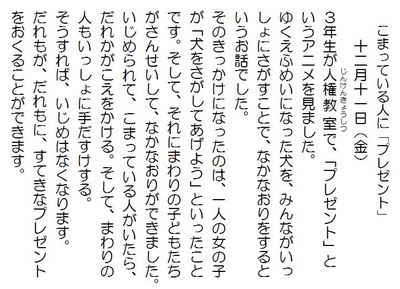 こまっている人に「プレゼント」
十二月十一日（金）
３年生が人権教室で、「プレゼント」と
じんけんきょうしつ
いうアニメを見ました。
ゆくえふめいになった犬を、みんながいっ
しょにさがすことで、なかなおりをすると
いうお話でした。
そのきっかけになったのは、一人の女の子
が「犬をさがしてあげよう」といったこと
です。そして、それにまわりの子どもたち
がさんせいして、なかなおりができました。
いじめられて、こまっている人がいたら、
だれかがこえをかける。そして、まわりの
人もいっしょに手だすけする。
そうすれば、いじめはなくなります。
だれもが、だれもに、すてきなプレゼント
をおくることができます。